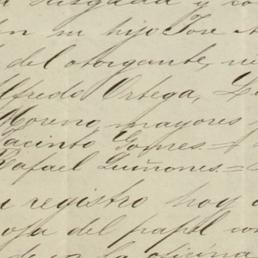 juzgada y co
en su hijo José A
del otorgante, ve
lfredo Ortega, L
Moreno, mayores
Jacinto Torres =
Rafael Quiñones. =
u registro hoy
oja del papel con
de la oficina